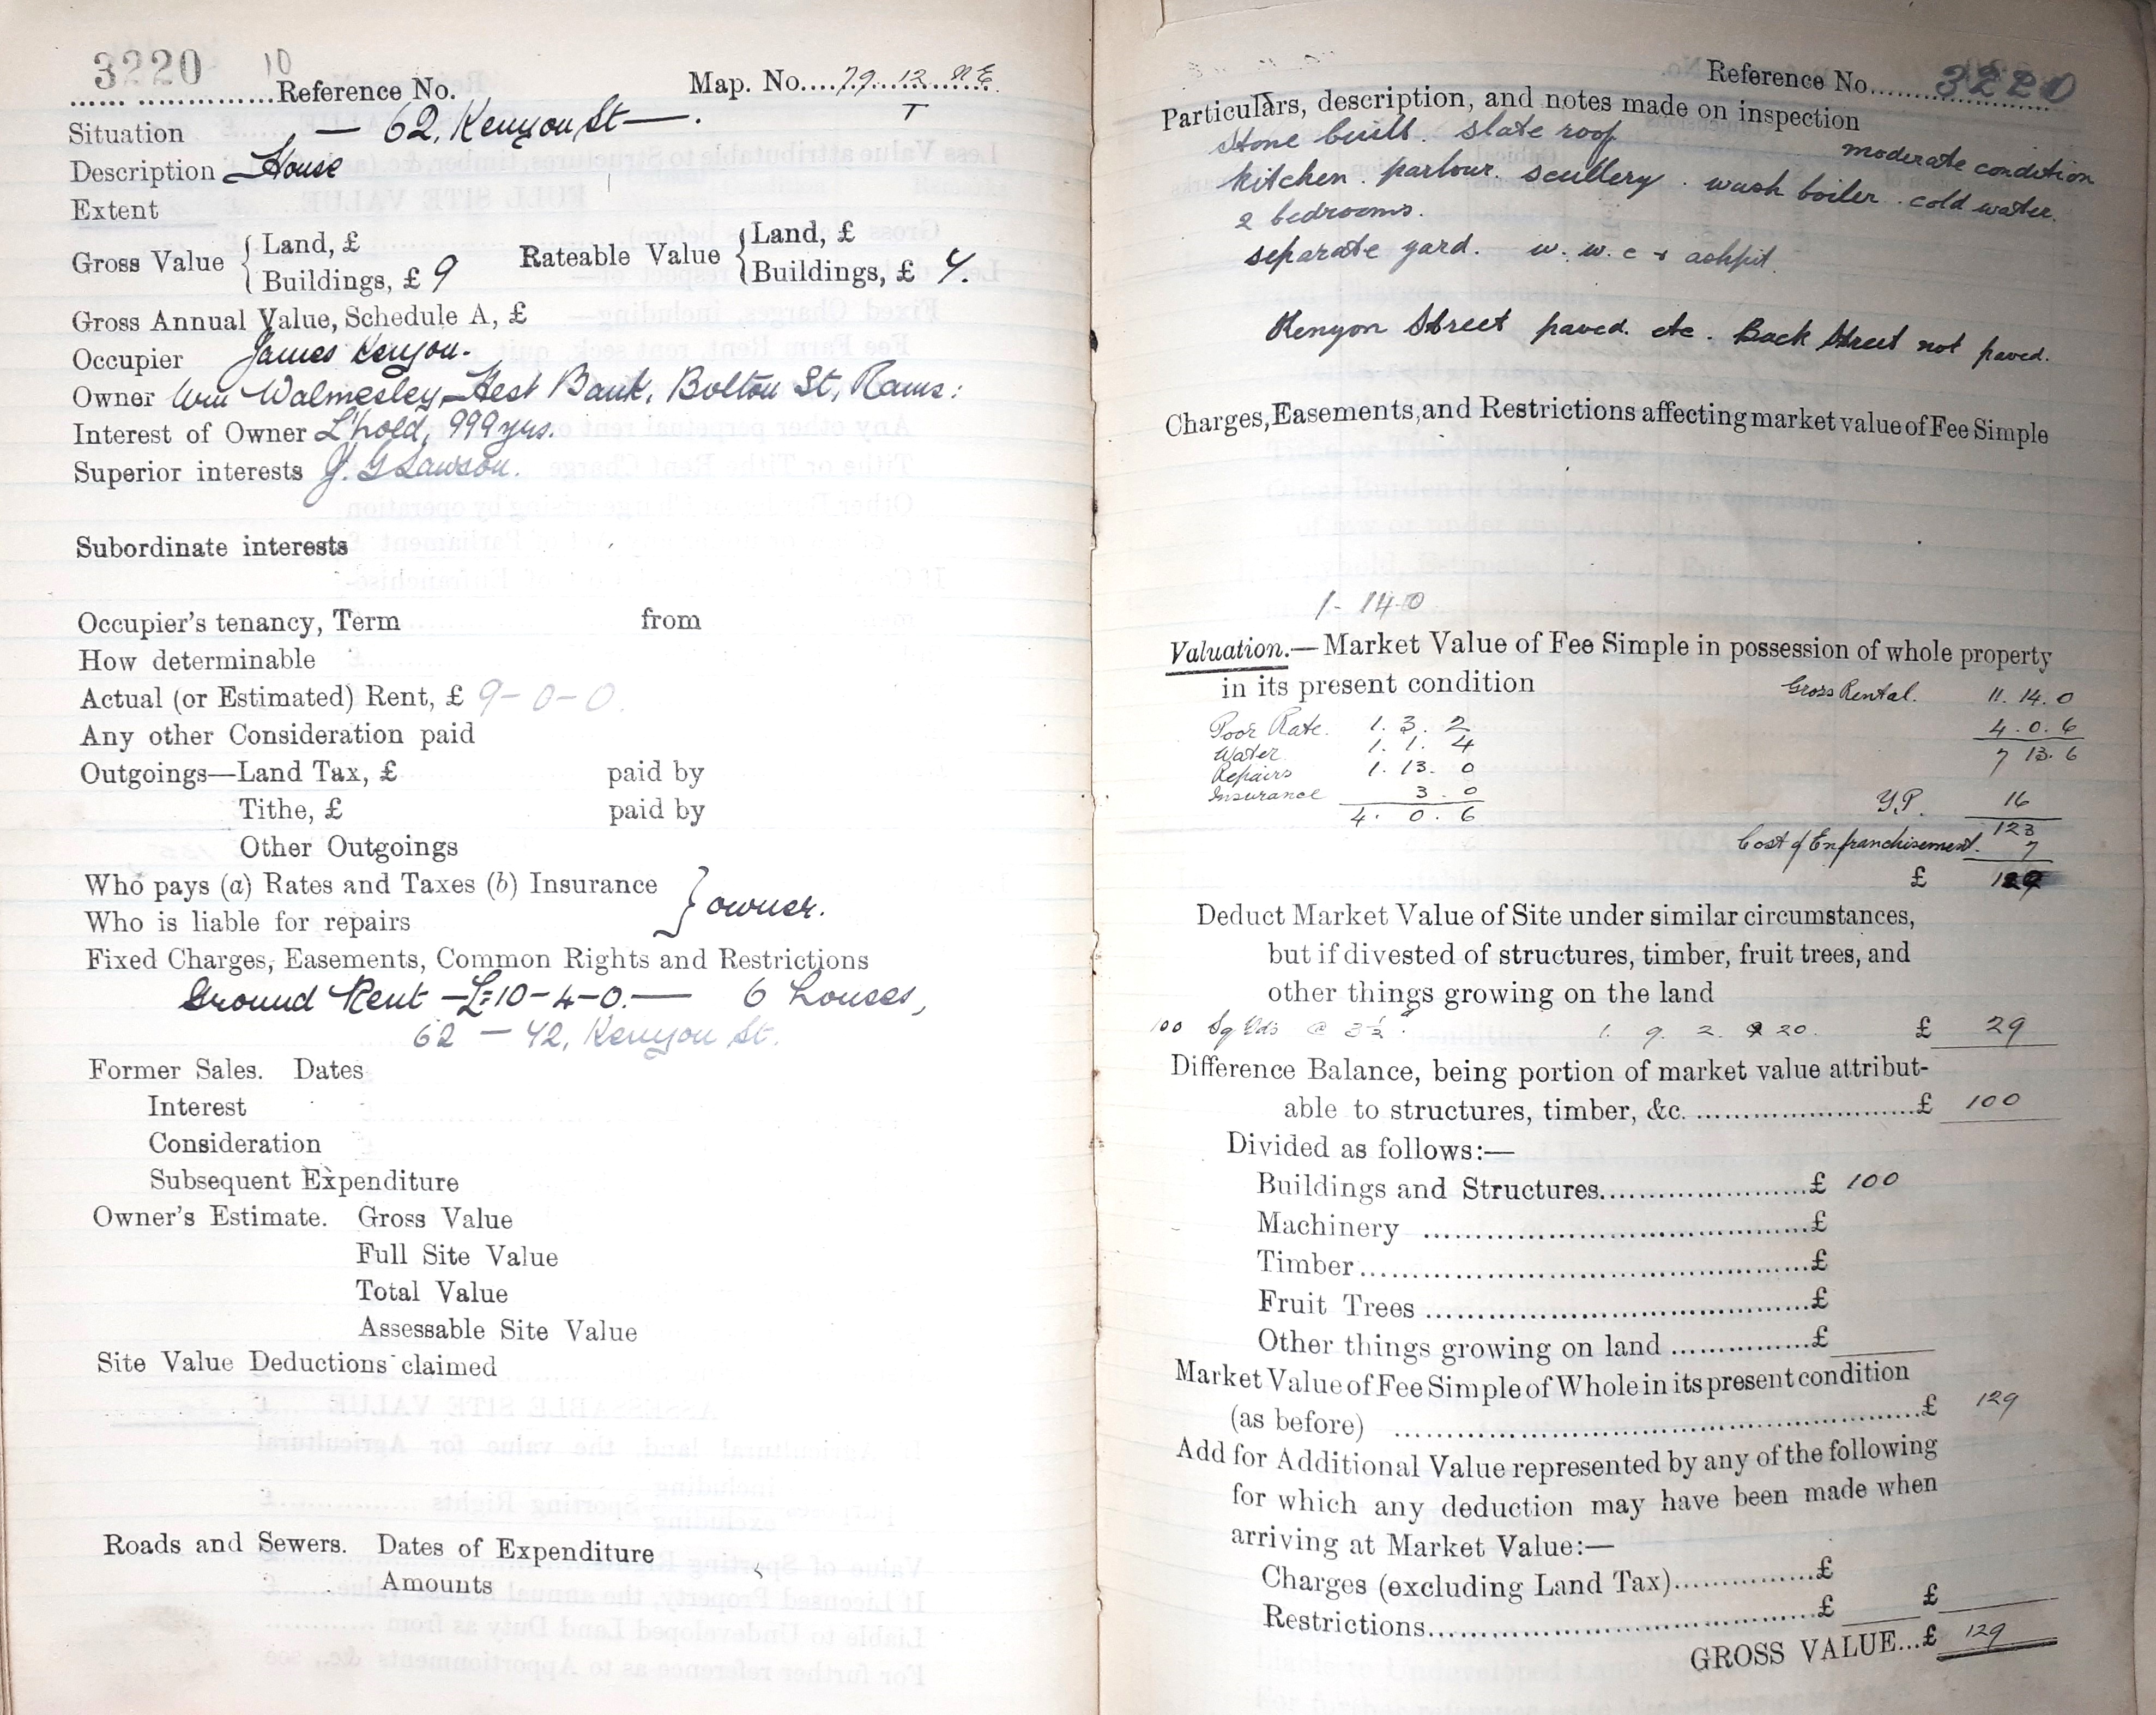 3220 10
Reference No. Map. No. 79. 12. N.E
T
Situation — 62, Kenyon St —.
Description House
Extent
Gross Value { Land, £ Rateable Value { Land, £
Buildings, £ 9 Buildings, £
Gross Annual Value, Schedule A, £
Occupier James Kenyon.
Owner Wm Walmesley, Hest Bank, Bolton St, Rams:
Interest of Owner L'hold, 999 yrs.
Superior interests J. G Lawson.
Subordinate interests
Occupier's tenancy, Term from
How determinable
Actual (or Estimated) Rent, £ 9-0-0.
Any other Consideration paid
Outgoings—Land Tax, £ paid by
Tithe, £ paid by
Other Outgoings
Who pays (a) Rates and Taxes (b) Insurance
} owner.
Who is liable for repairs
Fixed Charges, Easements, Common Rights and Restrictions
Ground Rent — £10-4-0. — 6 houses,
62 — 42, Kenyon St.
Former Sales. Dates
Interest
Consideration
Subsequent Expenditure
Owner's Estimate. Gross Value
Full Site Value
Total Value
Assessable Site Value
Site Value Deductions claimed
Roads and Sewers. Dates of Expenditure
Amounts
Reference No. 3220
Particulars, description, and notes made on inspection
Stone built. slate roof moderate condition
kitchen. parlour. scullery. wash boiler. cold water.
2 bedrooms.
separate yard. w. w. c + ashpit.
Kenyon Street paved. etc. Back Street not paved.
Charges, Easements, and Restrictions affecting market value of Fee Simple
1-14-0
Valuation.—Market Value of Fee Simple in possession of whole property
in its present condition Gross Rental. 11. 14. 0
Poor Rate. 1. 3. 2 4. 0. 6
Water 1. 1. 4 7 13. 6
Repairs 1. 13. 0
Insurance 3. 0 Y.P. 16
4. 0. 6 123
Cost of Enfranchisement. 7
£ 129
Deduct Market Value of Site under similar circumstances,
but if divested of structures, timber, fruit trees, and
other things growing on the land
100 Sq Yds @ 3½d 1. 9. 2. 20. £ 29
Difference Balance, being portion of market value attribut-
able to structures, timber, &c. £ 100
Divided as follows:—
Buildings and Structures £ 100
Machinery £
Timber £
Fruit Trees £
Other things growing on land £
Market Value of Fee Simple of Whole in its present condition
(as before) £ 129
Add for Additional Value represented by any of the following
for which any deduction may have been made when
arriving at Market Value:—
Charges (excluding Land Tax) £
Restrictions £ £
GROSS VALUE...£ 129